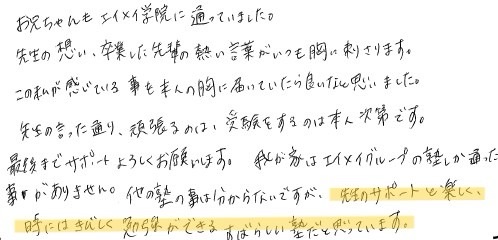 お兄ちゃんもエイメイ学院に通っていました。
先生の想い、卒業した先輩の熱い言葉がいつも胸に刺さります。
この私が感じている事も本人の胸に届いていたら良いなと思いました。
先生の言った通り、頑張るのは、受験をするのは本人次第です。
最後までサポートよろしくお願いします。 我が家はエイメイグループの塾しか通った
事がありません。他の塾の事は分からないですが、先生のサポートと楽しく、
時にはきびしく勉強ができるすばらしい塾だと思っています。